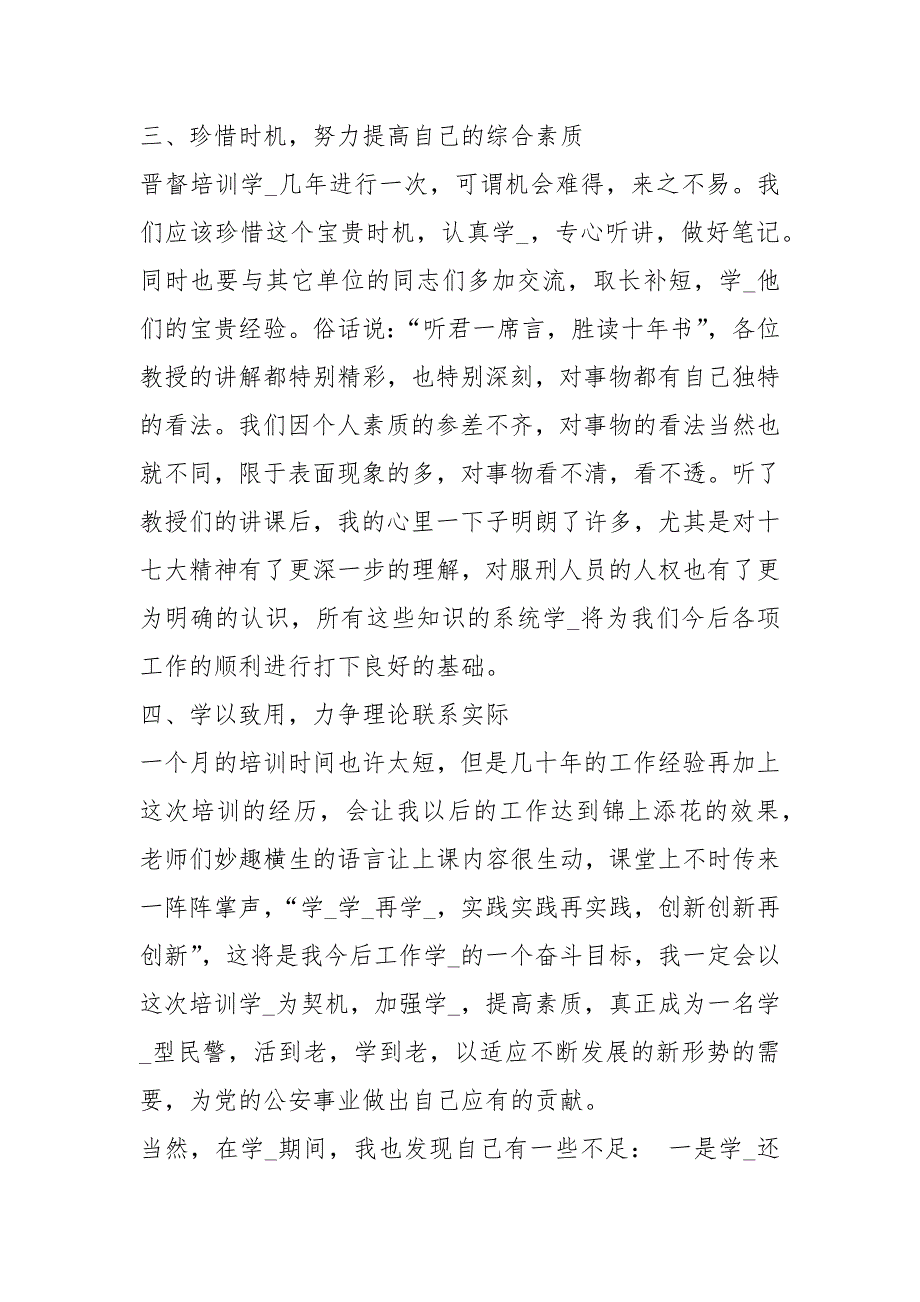 三、珍惜时机，努力提高自己的综合素质
晋督培训学_几年进行一次，可谓机会难得，来之不易。我
们应该珍惜这个宝贵时机，认真学_，专心听讲，做好笔记。
同时也要与其它单位的同志们多加交流，取长补短，学_他
们的宝贵经验。俗话说：“听君一席言，胜读十年书”，各位
教授的讲解都特别精彩，也特别深刻，对事物都有自己独特
的看法。我们因个人素质的参差不齐，对事物的看法当然也
就不同，限于表面现象的多，对事物看不清，看不透。听了
教授们的讲课后，我的心里一下子明朗了许多，尤其是对十
七大精神有了更深一步的理解，对服刑人员的人权也有了更
为明确的认识，所有这些知识的系统学_将为我们今后各项
工作的顺利进行打下良好的基础。
四、学以致用，力争理论联系实际
一个月的培训时间也许太短，但是几十年的工作经验再加上
这次培训的经历，会让我以后的工作达到锦上添花的效果，
老师们妙趣横生的语言让上课内容很生动，课堂上不时传来
一阵阵掌声，“学_学_再学_，实践实践再实践，创新创新再
创新”，这将是我今后工作学_的一个奋斗目标，我一定会以
这次培训学_为契机，加强学_，提高素质，真正成为一名学
_型民警，活到老，学到老，以适应不断发展的新形势的需
要，为党的公安事业做出自己应有的贡献。
当然，在学_期间，我也发现自己有一些不足： 一是学_还